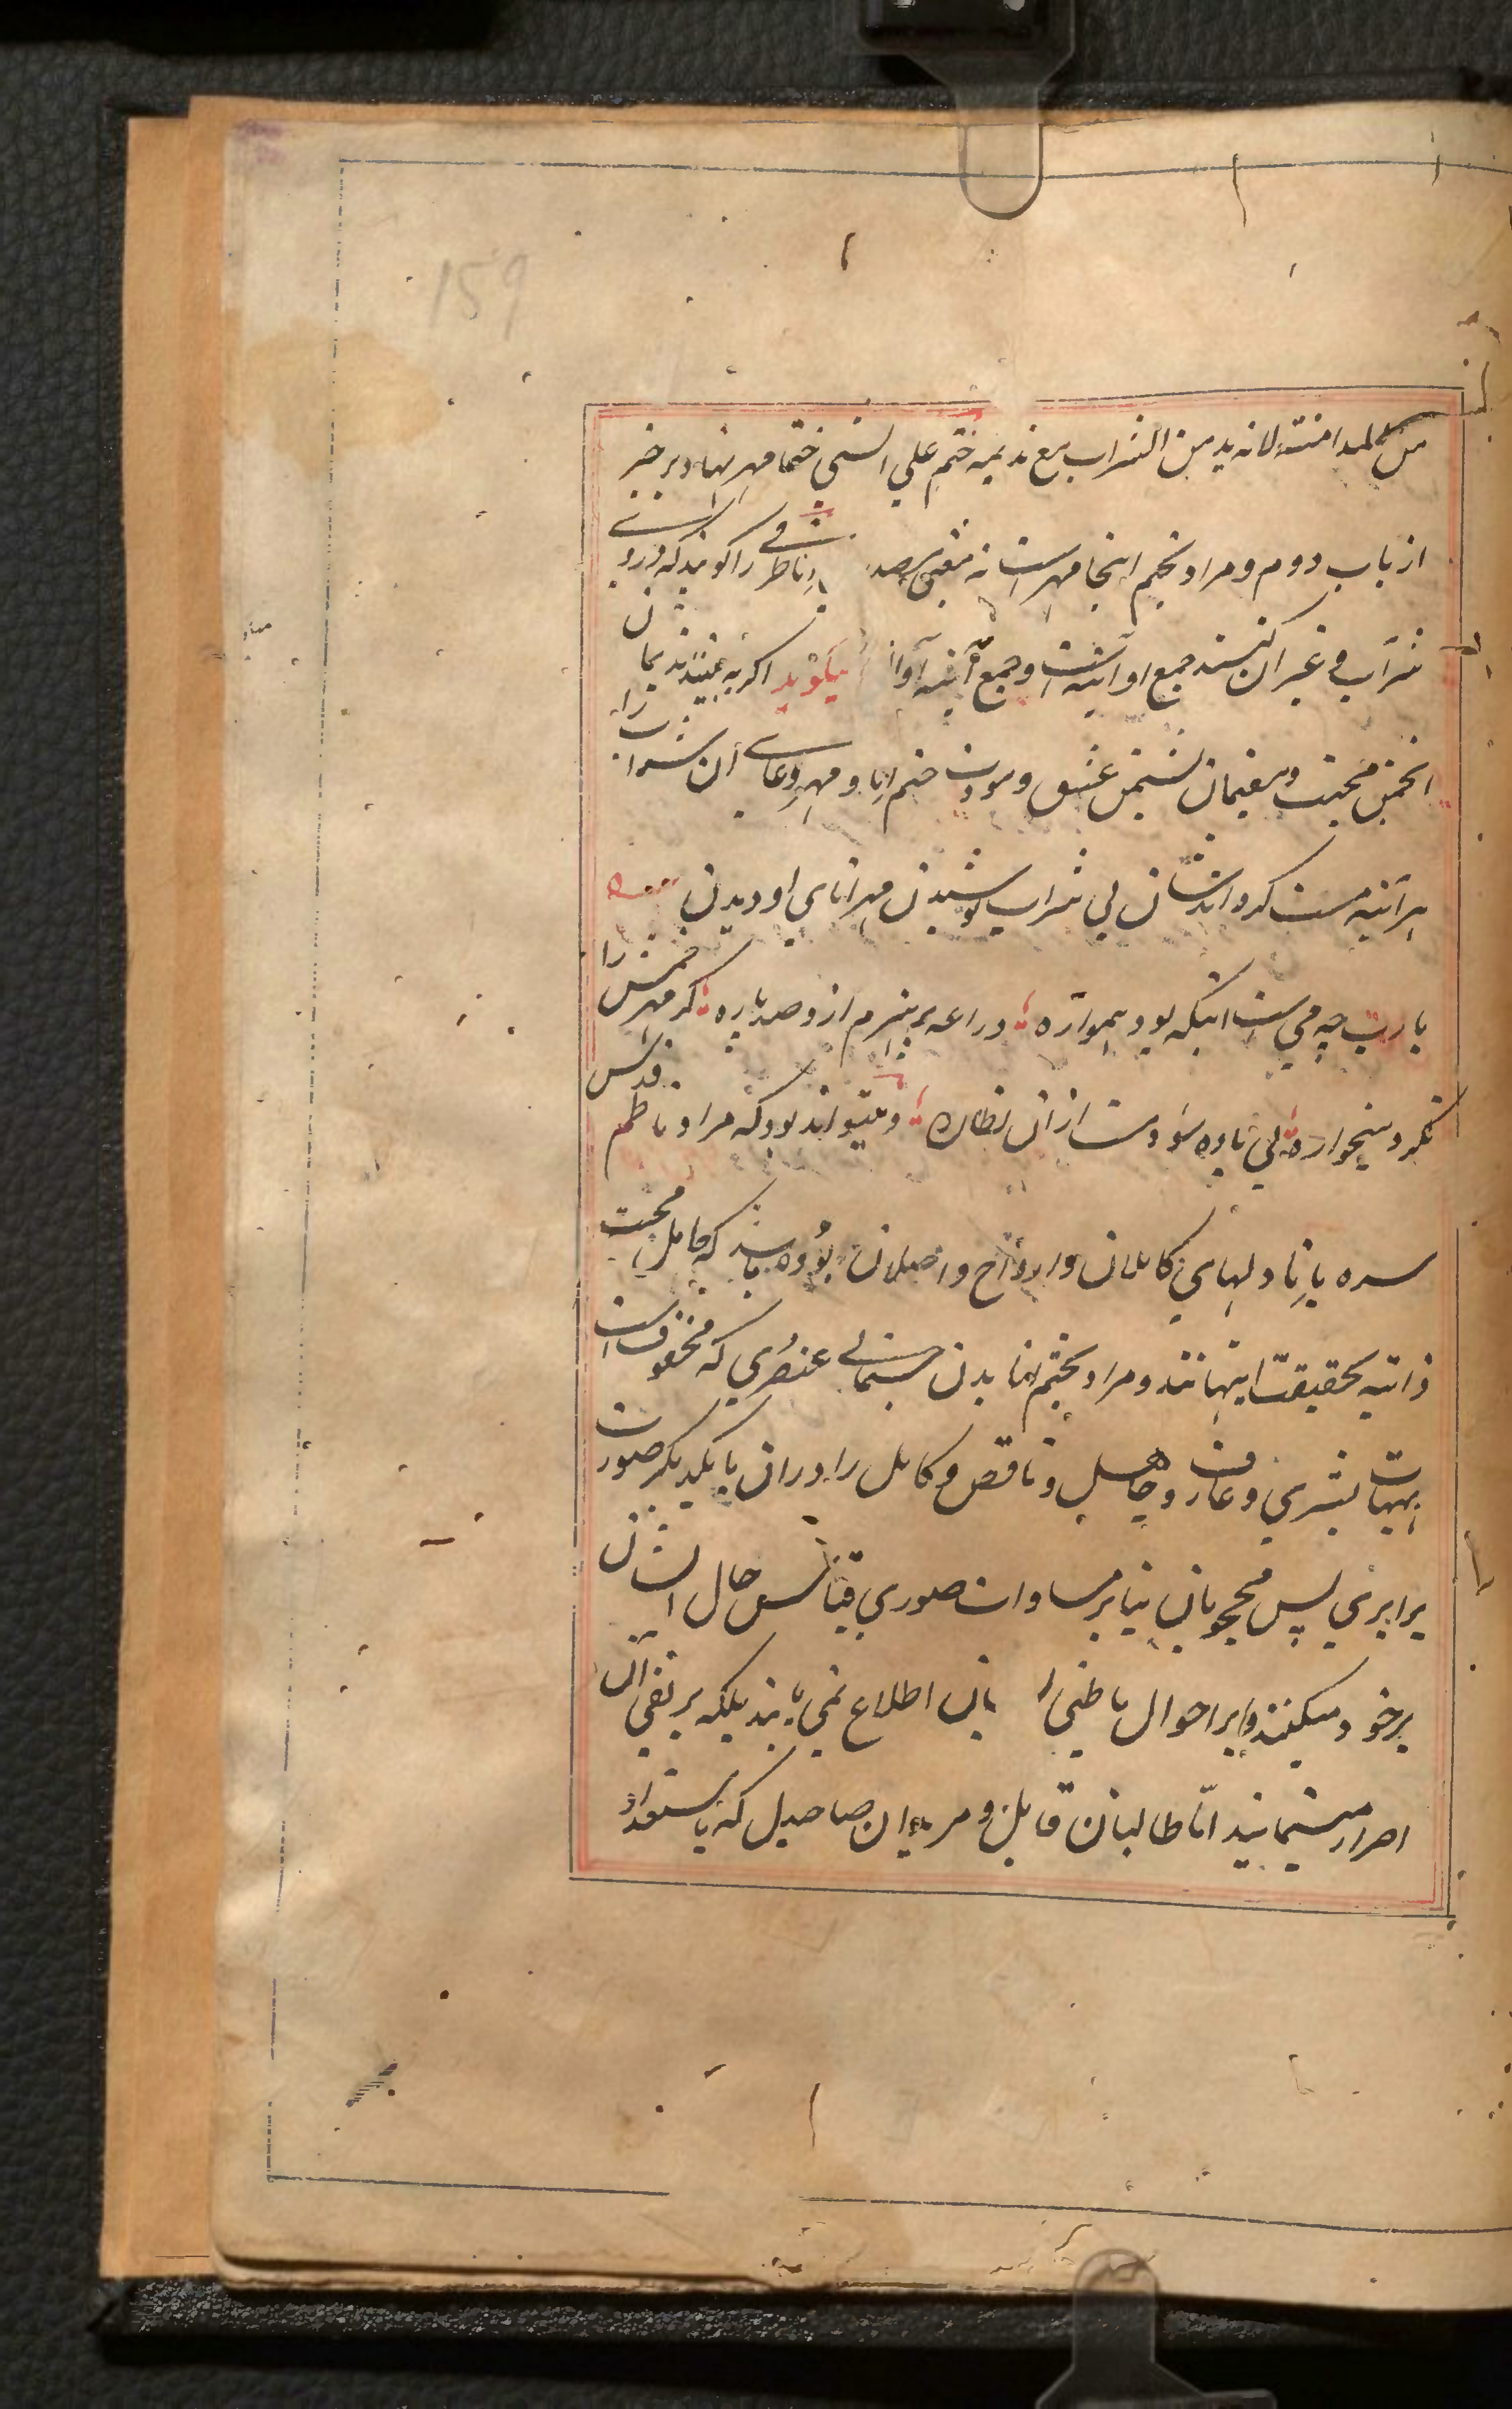 159
من المدامنة لانه یدمن الشراب مع ندیمه ختم علی الشیء ختما مهر نهاد بر چیز
از باب دوم و مراد بختم اینجا مهر است نه معنی مصدر انا ظرفی را گویند که در وی
شراب و غیر آن کنند جمع او آنیه است و جمع آنیه اوانی میگوید اگر به بینند ندیمان
انجمن محبت و مقیمان نشیمن عشق و مودت ختم انا و مهر وعای آن شراب را
هر آئینه مست گرداند ایشان را بی شراب نوشیدن مهر انای او دیدن
یارب چه می است اینکه بود همواره دراعه پرهیزم ازو صد پاره گر مهر خمش را
نگرد میخواره بی باده شود مست ازان نظاره و میتواند بود که مراد ناظم قدس
سره بانا دلهای کاملان و ارواح واصلان بوده باشد که حامل محبت
ذاتیه بحقیقت اینهااند و مراد بختم انا بدن جسمانی عنصری که مخفوف است
بهیئات بشری و عارف و جاهل و ناقص و کامل را در ان با یکدیگر صورت
برابری پس محجوبان بنا بر مساوات صوری قیاس حال ایشان
بر خود میکنند و بر احوال باطنی ایشان اطلاع نمی یابند بلکه بر نفی آن
اصرار مینمایند اما طالبان قابل و مریدان صاحبدل که باستعداد